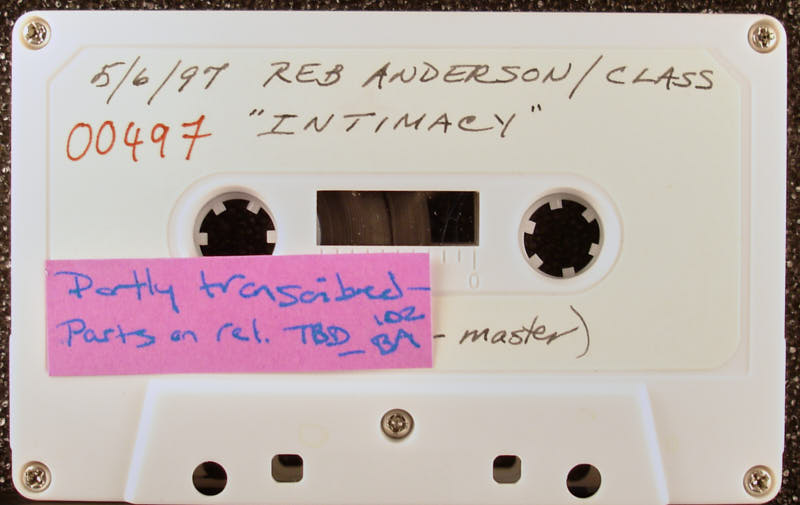 5/6/97 REB ANDERSON/CLASS
00497 "INTIMACY"
0
Partly transcribed-
Parts on rel. TBD_ BA
- master)